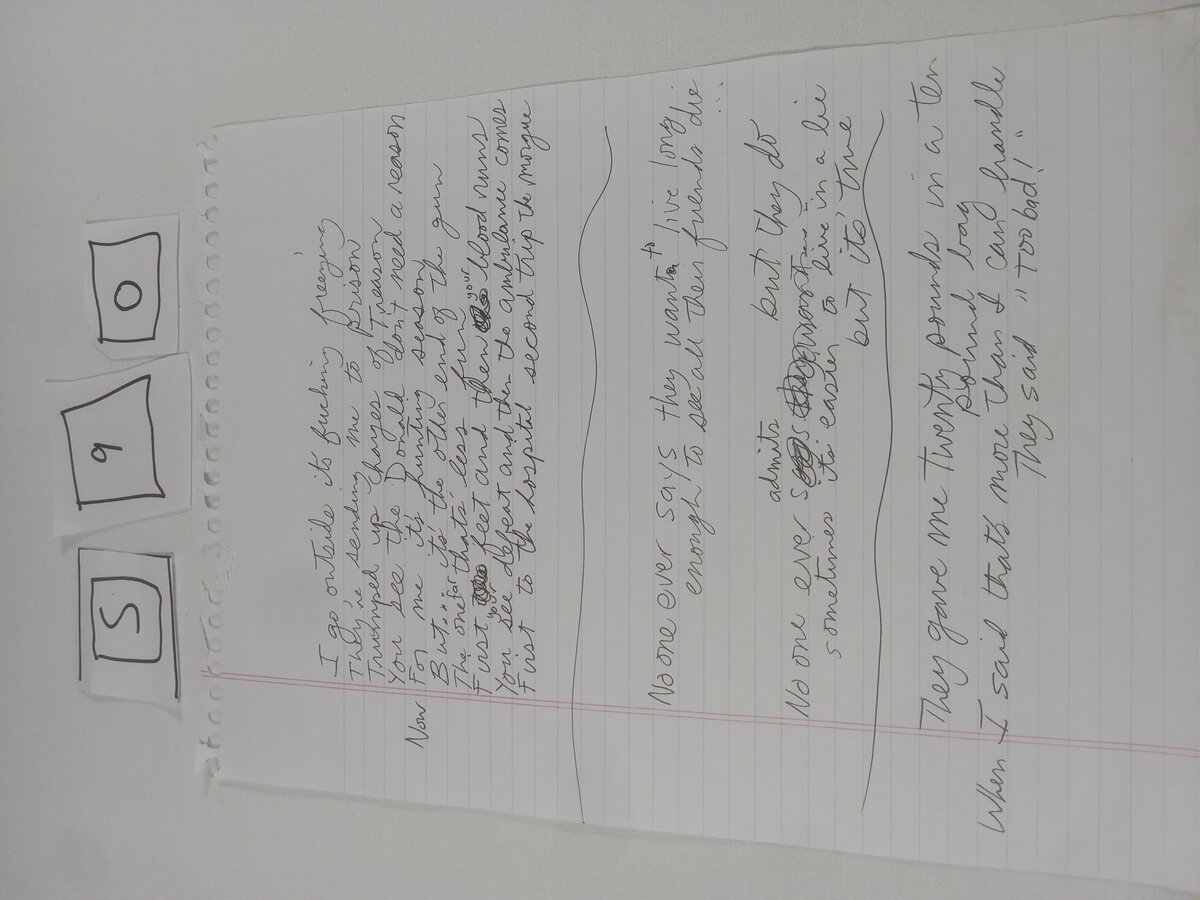 5 9 0
I go outside its fucking freezing
They're sending me to prison
Trumped up charges of Treason
You see the Donald don't need a reason
Now For me it's hunting season
But... its the other end of the gun
The one thats far less fun
First your feet and then your blood runs
You see defeat and then the ambulance comes
First to the hospital second trip the morgue
No one ever says they want to live long
enough to see all their friends die...
No one ever admits but they do
sometimes its easier to live in a lie
but its' true
They gave me Twenty pounds in a ten
pound bag
When I said that's more than I can handle
They said "Too bad!"